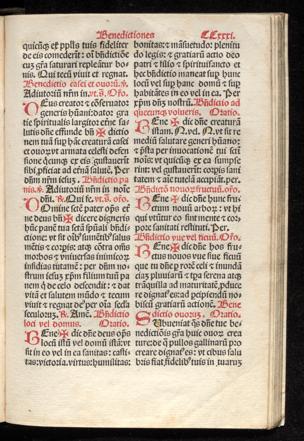 Benedictiones CLxxxi.
quicũq; ex pp̃lis tuis fideliter
de eis comederit: oĩ bñdictiõe
tuq; gr̃a saturari repleatur bo
nis. Qui tecũ viuit et regnat.
Benedictio casei et ouorũ. ℣.
Adiutoriũ nr̃m in. vt. s. Oro.
Deus creator ⁊ cõseruator
generis hũani: dator gra
tie spiritualis largitor eterne sa
lutis: dñe effunde bñ ✠ dictio
nem tuã sup hãc creaturã casei
et ouorũ: vt armata celesti defen
sione quicũq; ex eis gustauerit
sibi p̃ficiat ad eĩnã salutẽ. Per
dñm nr̃m iesuȝ. Bñdictio pa
nis. ℣. Adiutoriũ nr̃m in noĩe
dñi. ℟. Qui fe. vt. s. Oro.
Domine sctẽ pater oĩps et
ne deus bñ ✠ dicere digneris
hũc panẽ tua sctã sp̃uali bñdi
ctione: vt sit oĩbꝰ sumẽtibꝰ salus
mẽtis et corpis: atq; cõtra oẽs
morbos ⁊ vniuersas inimicorũ
insidias tutamẽ: per dñm no
strum iesum xp̃m filium tuũ pa
nem q̃ de celo descendit: ⁊ dat
vitã et salutem mũdo: ⁊ tecum
viuit ⁊ regnat de' per oĩa secla
seculorum. ℟. Amẽ. Bñdictio
loci vel domus. Oratio.
Bene ✠ dic dñe deus oĩps
locũ istũ vel domũ istã: vt
sit in eo vel in ea sanitas: casti-
tas: victoria. virtus: humilitas:
bonitas: ⁊ mãsuetudo: plenitu
do legis: ⁊ gratiarũ actio deo
patri ⁊ filio ⁊ spiritui sancto: et
hec bñdictio maneat sup hunc
locũ vel sup hanc domũ: ⁊ sup
habitãtes in eo vel in ea. Per
xp̃m dñȝ nostrũ. Bñdictio ad
quecũq; volueris. Oratio.
Bene ✠ dic dñe creaturã
istam. N. vel. N. vt sit re
mediũ salutare generi hũano:
⁊ p̃sta per inuocationẽ tui sctĩ
nois: vt quicũq; ex ea sumpse
rint: vel gustauerit: corpis sani
tatem ⁊ aĩe tutelã accipiãt. per.
Bñdictio nouorũ fructuũ. Oro.
Bene ✠ dic dñe hunc fru-
ctum nouũ arbor: vt hi
qui vtũntur eo sint mente ⁊ cor
pore sanitati restituti. Per.
Bñdictio vue vel ficuũ. Oro.
Bene ✠ dic dñe hos fru
ctus nouos vue siue ficuũ
que tu dñe p rorẽ celi ⁊ inunda
ciaȝ pluuiarũ ⁊ tpa serena atq;
trãquilla ad maturitatẽ pduce
re dignat'es: ad pcipiendũ no-
bis cũ gratiarũ actione. Bene
dictio ouorũ. Oratio.
Subueniat q̃s dñe tue be-
nedictiõis gr̃a huic ouorũ crea
ture: de q̃ pullos gallinarũ pro
creare dignat' es: vt cibus salu
bris fiat fidelibꝰ tuis in tuarũ